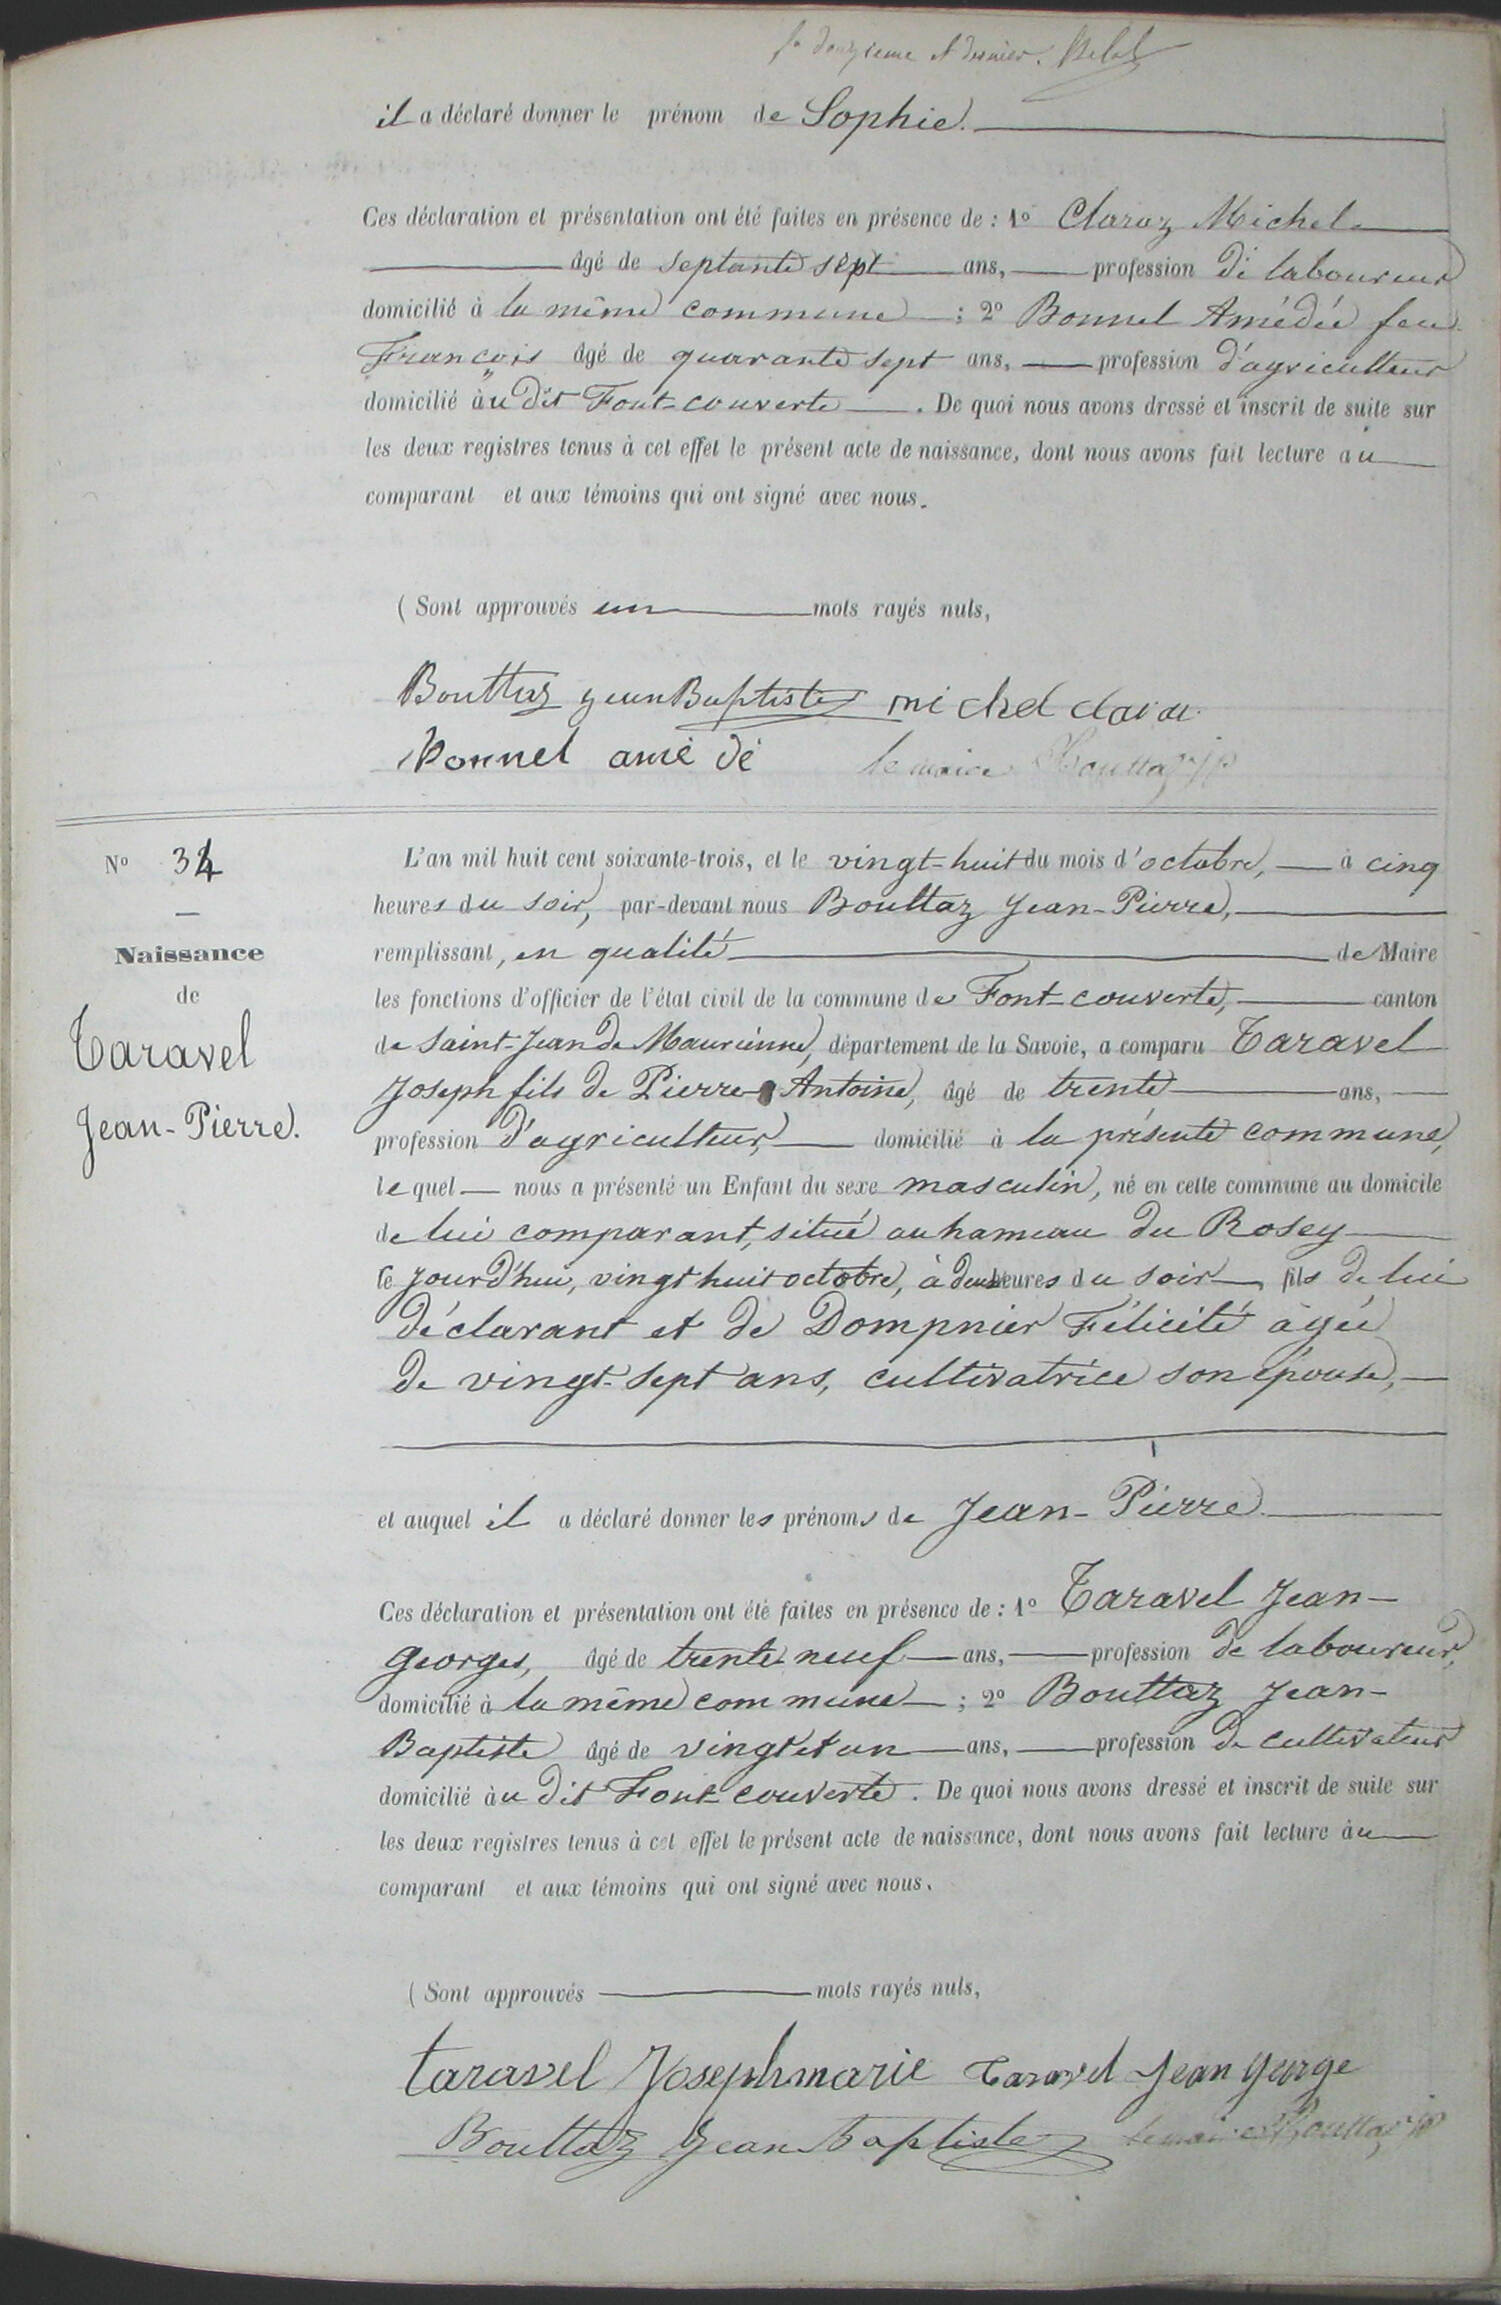 fo douzième et dernier.
il a déclaré donner le prénom de Sophie.
Ces déclaration et présentation ont été faites en présence de : 1o Claraz Michel
âgé de septante sept ans, profession de laboureur
domicilié à la même commune ; 2o Bonnel Amédée feu
François âgé de quarante sept ans, profession d'agriculteur
domicilié àu dit Font-couverte. De quoi nous avons dressé et inscrit de suite sur
les deux registres tenus à cet effet le présent acte de naissance, dont nous avons fait lecture au
comparant et aux témoins qui ont signé avec nous.
( Sont approuvés un mots rayés nuls,
Bouttaz jean Baptiste michel claraz
Bonnel amé dé le maire Bouttaz jp
No 34
Naissance
de
Taravel
Jean-Pierre.
L'an mil huit cent soixante-trois, et le vingt-huit du mois d'octobre, à cinq
heures du soir, par-devant nous Bouttaz Jean-Pierre,
remplissant, en qualité de Maire
les fonctions d'officier de l'état civil de la commune de Font-couverte, canton
de Saint-Jean de Maurienne, département de la Savoie, a comparu Taravel
Joseph fils de Pierre Antoine, âgé de trente ans,
profession d'agriculteur, domicilié à la présente commune,
lequel nous a présenté un Enfant du sexe masculin, né en cette commune au domicile
de lui comparant, situé au hameau du Rosey
le jourd'hui, vingt huit octobre, à deux heures du soir, fils de lui
déclarant et de Dompnier Félicité âgée
de vingt-sept ans, cultivatrice son épouse,
et auquel il a déclaré donner les prénoms de Jean-Pierre.
Ces déclaration et présentation ont été faites en présence de : 1o Taravel Jean-
Georges, âgé de trente neuf ans, profession de laboureur,
domicilié à la même commune ; 2o Bouttaz Jean-
Baptiste âgé de vingt et un ans, profession de cultivateur
domicilié àu dit Font-couverte. De quoi nous avons dressé et inscrit de suite sur
les deux registres tenus à cet effet le présent acte de naissance, dont nous avons fait lecture àu
comparant et aux témoins qui ont signé avec nous.
( Sont approuvés mots rayés nuls,
taravel Josephmarie taravel jean george
Bouttaz Jean Baptiste le maire Bouttaz jp